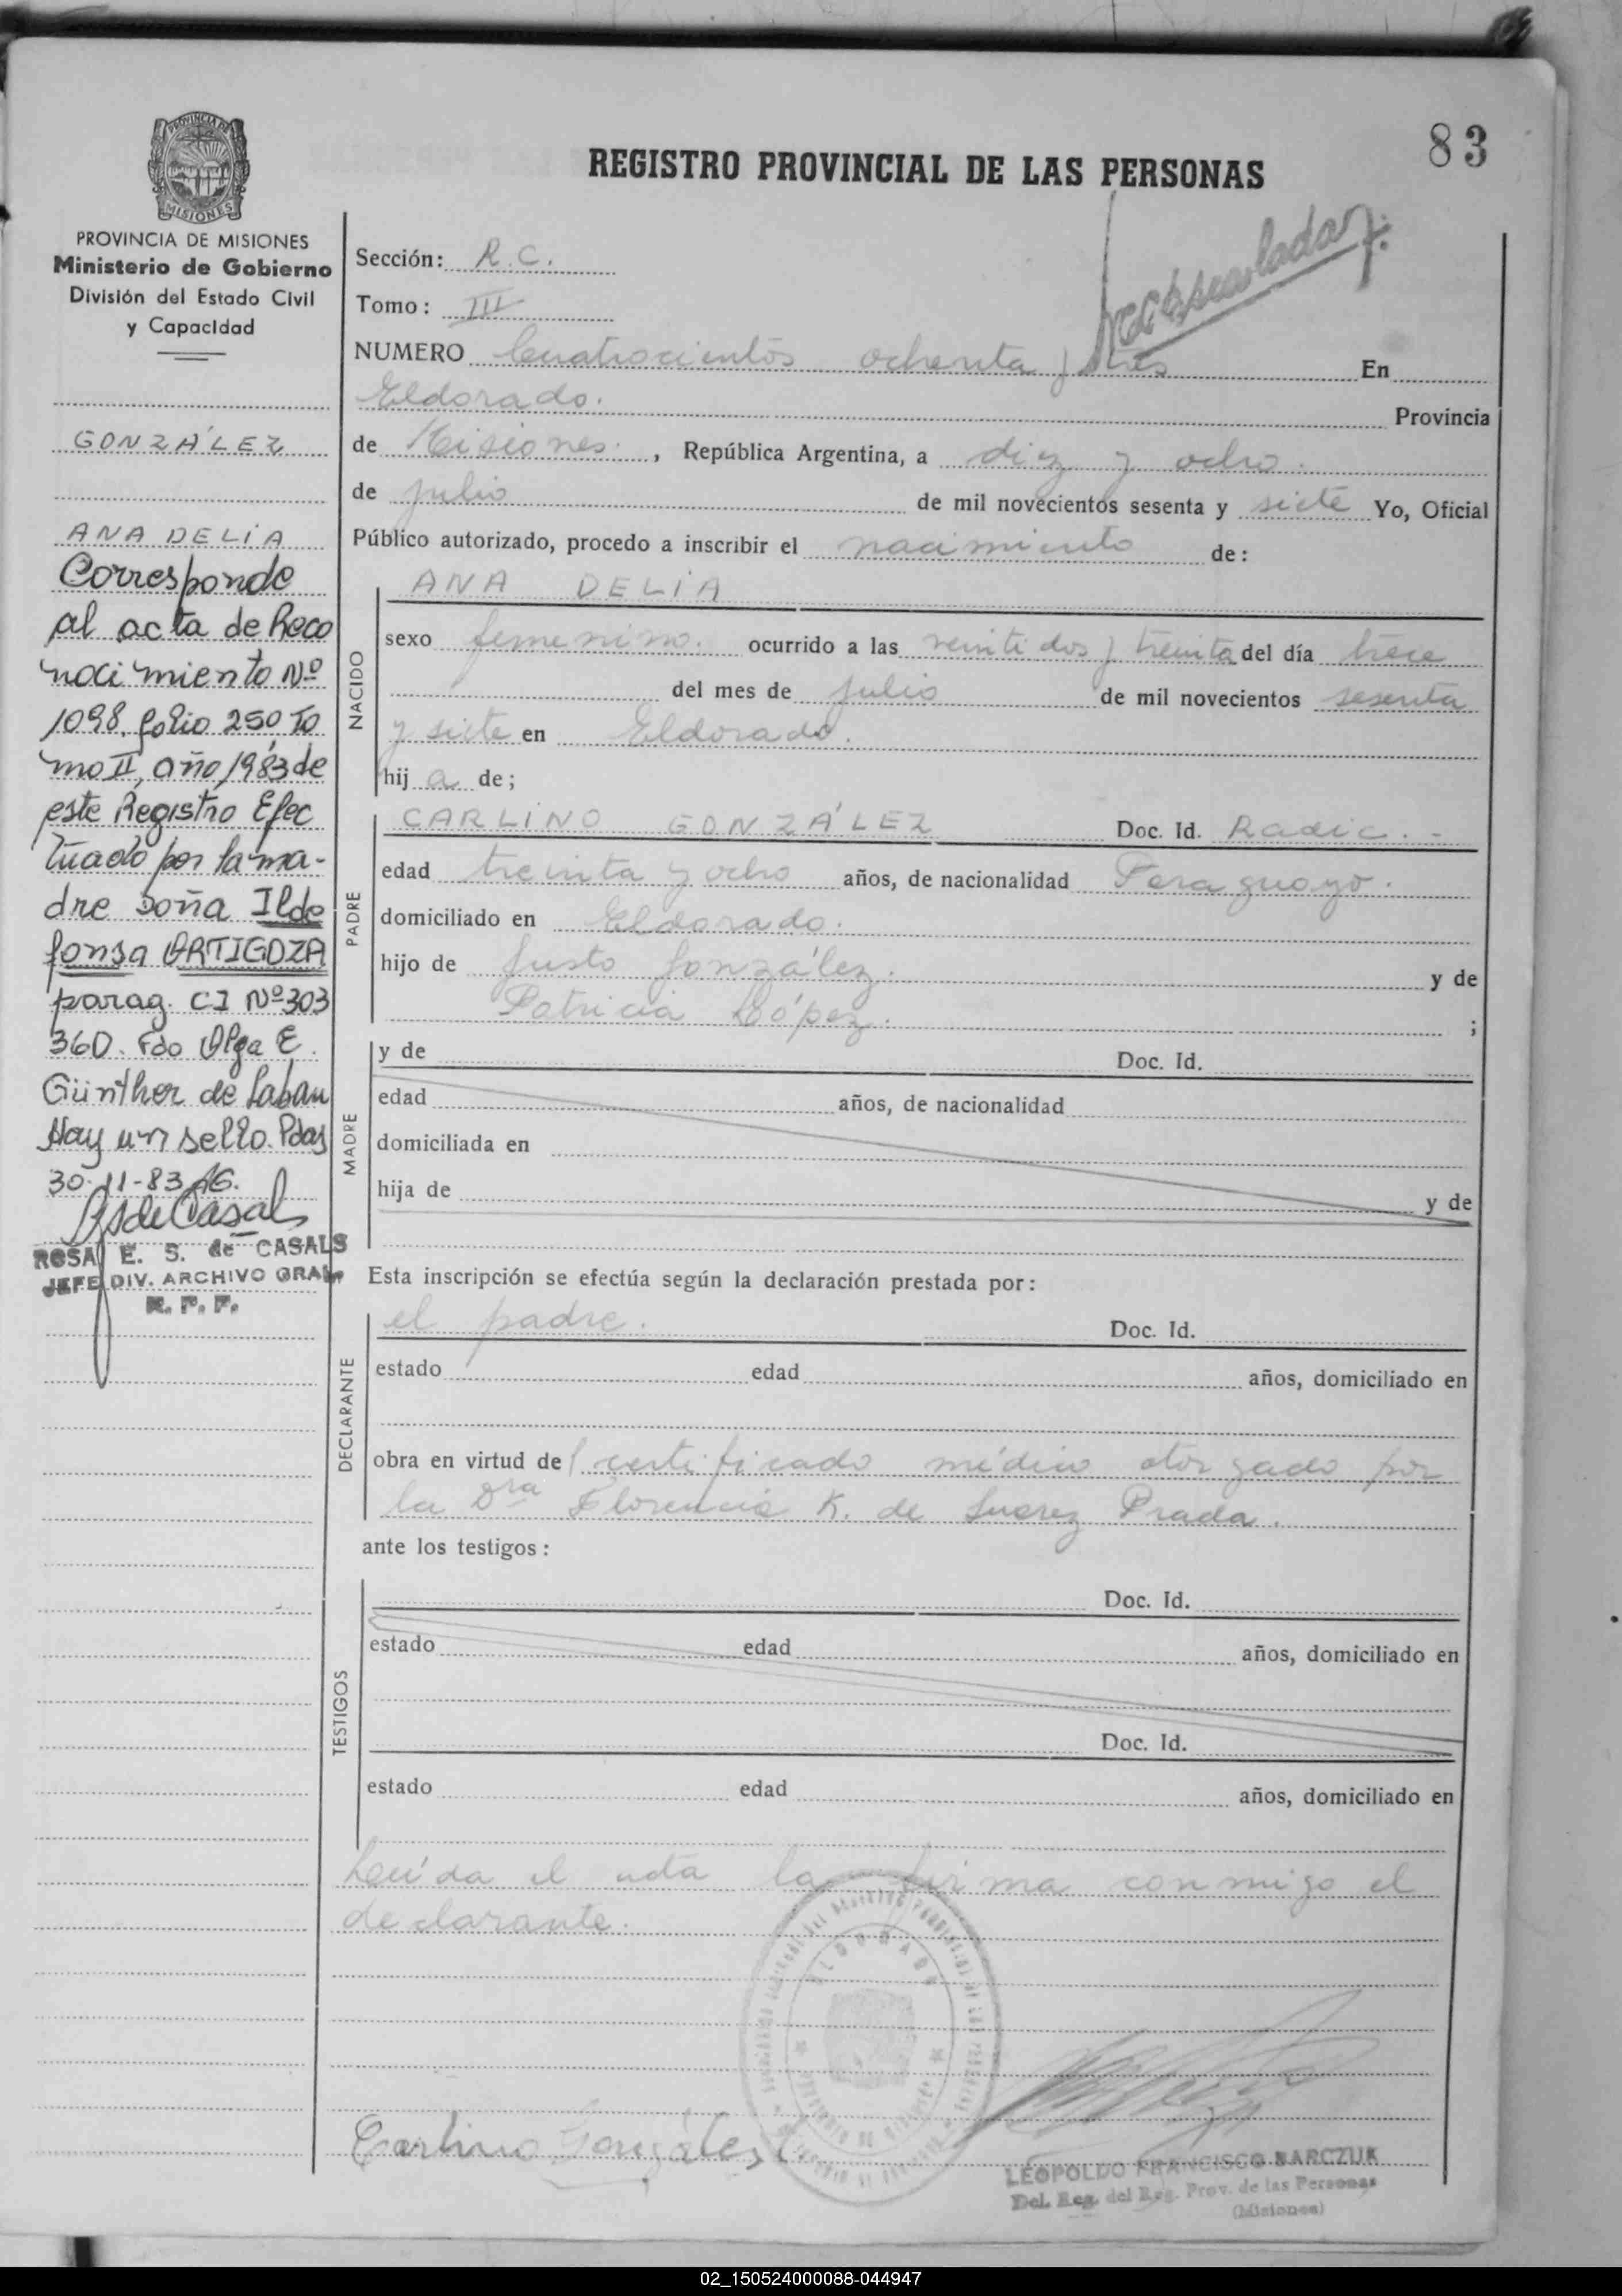 83
REGISTRO PROVINCIAL DE LAS PERSONAS
PROVINCIA DE
MISIONES
PROVINCIA DE MISIONES
Ministerio de Gobierno
División del Estado Civil
y Capacidad
GONZÁLEZ
ANA DELIA
Corresponde
al acta de Reco
nocimiento Nº
1098. folio 250 To
mo II, año 1983 de
este Registro Efec
tuado por la ma-
dre Doña Ilde
fonsa ORTIGOZA
parag. CI Nº 303
360. Fdo Olga E.
Günther de Laban
Hay un sello. Pdas
30-11-83
ROSA E. S. de CASALS
JEFE DIV. ARCHIVO GRAL
R. P. P.
Sección: R.C.
Tomo: III
NUMERO Cuatrocientos ochenta y tres En
Eldorado. Provincia
de Misiones. , República Argentina, a diez y ocho.
de julio de mil novecientos sesenta y siete Yo, Oficial
Público autorizado, procedo a inscribir el nacimiento de:
NACIDO
ANA DELIA
sexo femenino. ocurrido a las veinti dos y treinta del día trece
del mes de julio de mil novecientos sesenta
y siete en Eldorado.
hij a de;
PADRE
CARLINO GONZÁLEZ Doc. Id. Radic. -
edad treinta y ocho años, de nacionalidad Paraguayo.
domiciliado en Eldorado.
hijo de Justo González. y de
Patricia López. ;
MADRE
y de Doc. Id.
edad años, de nacionalidad
domiciliada en
hija de y de
Esta inscripción se efectúa según la declaración prestada por:
DECLARANTE
el padre. Doc. Id.
estado edad años, domiciliado en
obra en virtud del certificado médico otorgado por
la Dra Florencia K. de Suarez Prada.
ante los testigos:
TESTIGOS
Doc. Id.
estado edad años, domiciliado en
Doc. Id.
estado edad años, domiciliado en
Leída el acta la firma conmigo el
declarante.
ELDORADO
Carlino González
LEOPOLDO FRANCISCO NARCZUK
Del. Reg. del Reg. Prov. de las Personas
(Misiones)
02_150524000088-044947